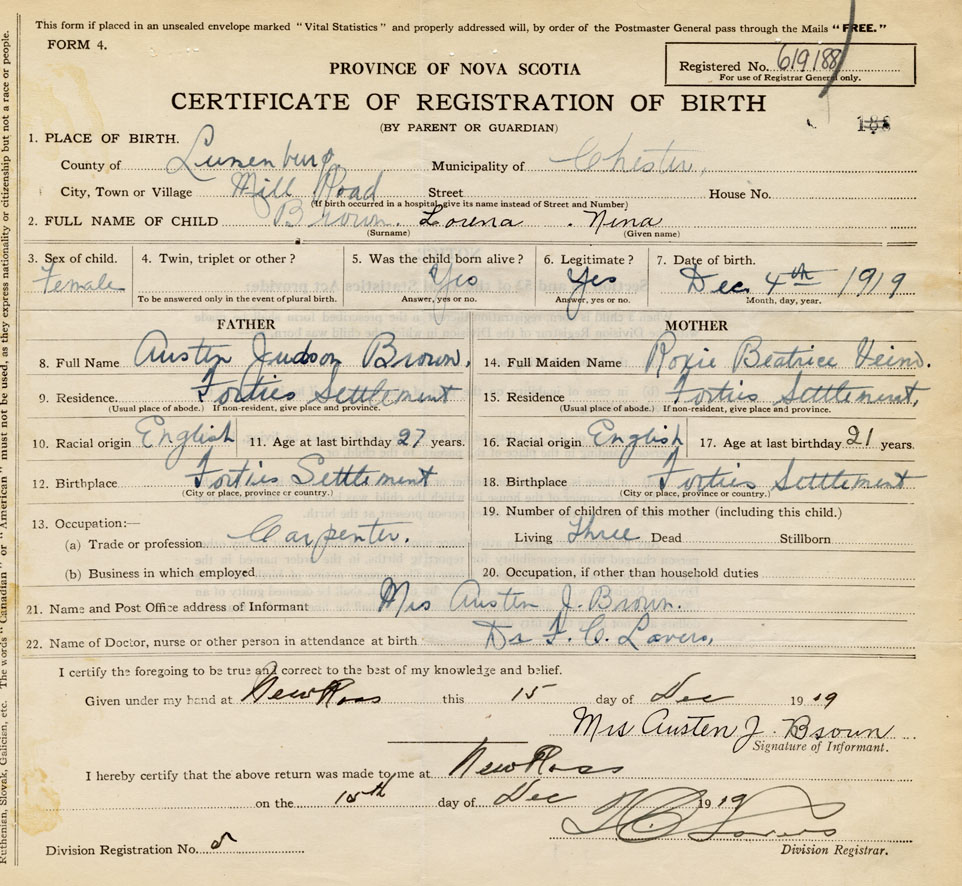 This form if placed in an unsealed envelope marked "Vital Statistics" and properly addressed will, by order of the Postmaster General pass through the Mails "FREE."
FORM 4.
Registered No. 619188
For use of Registrar General only.
PROVINCE OF NOVA SCOTIA
CERTIFICATE OF REGISTRATION OF BIRTH
(BY PARENT OR GUARDIAN)
1. PLACE OF BIRTH.
County of Lunenburg Municipality of Chester,
City, Town or Village Mill Road Street House No.
(If birth occurred in a hospital, give its name instead of Street and Number)
2. FULL NAME OF CHILD Brown. Lorena Nina
(Surname) (Given name)
3. Sex of child. Female
4. Twin, triplet or other?
To be answered only in the event of plural birth.
5. Was the child born alive?
Yes
Answer, yes or no.
6. Legitimate?
Yes
Answer, yes or no.
7. Date of birth.
Dec 4th 1919
Month, day, year.
FATHER
8. Full Name Austen Judson Brown.
9. Residence. Forties Settlement
(Usual place of abode.) If non-resident, give place and province.
10. Racial origin English 11. Age at last birthday 27 years.
12. Birthplace Forties Settlement
(City or place, province or country.)
13. Occupation:—
(a) Trade or profession Carpenter.
(b) Business in which employed
MOTHER
14. Full Maiden Name Roxie Beatrice Veino.
15. Residence Forties Settlement,
(Usual place of abode.) If non-resident, give place and province.
16. Racial origin English 17. Age at last birthday 21 years.
18. Birthplace Forties Settlement
(City or place, province or country.)
19. Number of children of this mother (including this child.)
Living Three Dead Stillborn
20. Occupation, if other than household duties
21. Name and Post Office address of Informant Mrs Austen J. Brown.
22. Name of Doctor, nurse or other person in attendance at birth Dr F. C. Lavers,
I certify the foregoing to be true and correct to the best of my knowledge and belief.
Given under my hand at New Ross this 15 day of Dec 1919
Mrs Austen J. Brown
Signature of Informant.
I hereby certify that the above return was made to me at New Ross
on the 15th day of Dec 1919
Lavers
Division Registrar.
Division Registration No.
Ruthenian, Slovak, Galician, etc. The words "Canadian" or "American" must not be used, as they express nationality or citizenship but not a race or people.